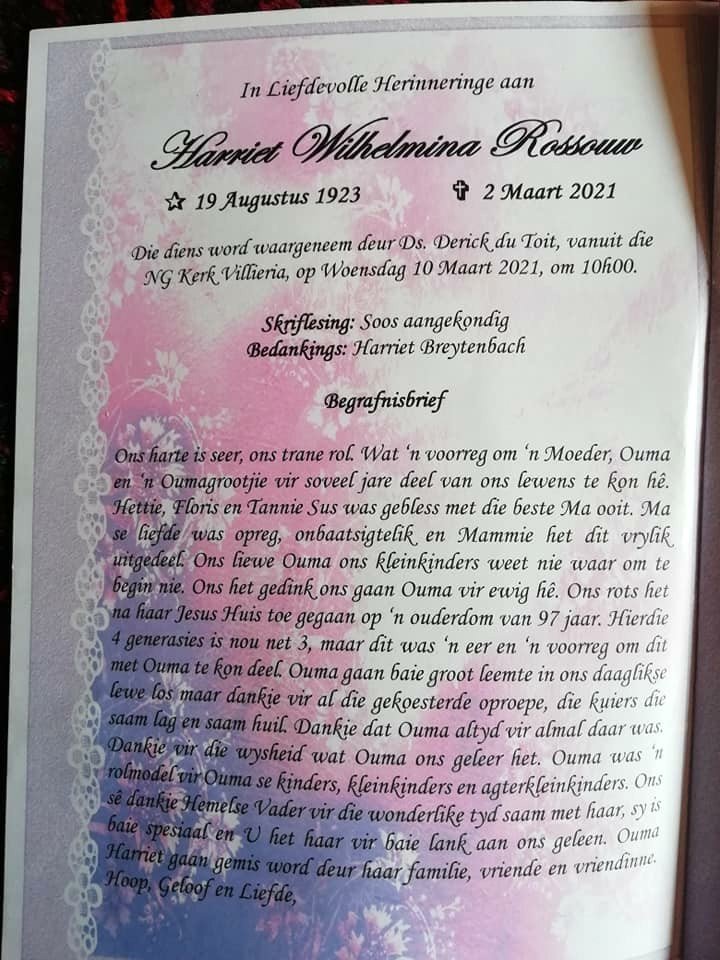 In Liefdevolle Herinneringe aan
Harriet Wilhelmina Rossouw
☆ 19 Augustus 1923 ✞ 2 Maart 2021
Die diens word waargeneem deur Ds. Derick du Toit, vanuit die
NG Kerk Villieria, op Woensdag 10 Maart 2021, om 10h00.
Skriflesing: Soos aangekondig
Bedankings: Harriet Breytenbach
Begrafnisbrief
Ons harte is seer, ons trane rol. Wat ‘n voorreg om ‘n Moeder, Ouma
en ‘n Oumagrootjie vir soveel jare deel van ons lewens te kon hê.
Hettie, Floris en Tannie Sus was gebless met die beste Ma ooit. Ma
se liefde was opreg, onbaatsigtelik en Mammie het dit vrylik
uitgedeel. Ons liewe Ouma ons kleinkinders weet nie waar om te
begin nie. Ons het gedink ons gaan Ouma vir ewig hê. Ons rots het
na haar Jesus Huis toe gegaan op ‘n ouderdom van 97 jaar. Hierdie
4 generasies is nou net 3, maar dit was ‘n eer en ‘n voorreg om dit
met Ouma te kon deel. Ouma gaan baie groot leemte in ons daaglikse
lewe los maar dankie vir al die gekoesterde oproepe, die kuiers die
saam lag en saam huil. Dankie dat Ouma altyd vir almal daar was.
Dankie vir die wysheid wat Ouma ons geleer het. Ouma was ‘n
rolmodel vir Ouma se kinders, kleinkinders en agterkleinkinders. Ons
sê dankie Hemelse Vader vir die wonderlike tyd saam met haar, sy is
baie spesiaal en U het haar vir baie lank aan ons geleen. Ouma
Harriet gaan gemis word deur haar familie, vriende en vriendinne.
Hoop, Geloof en Liefde,